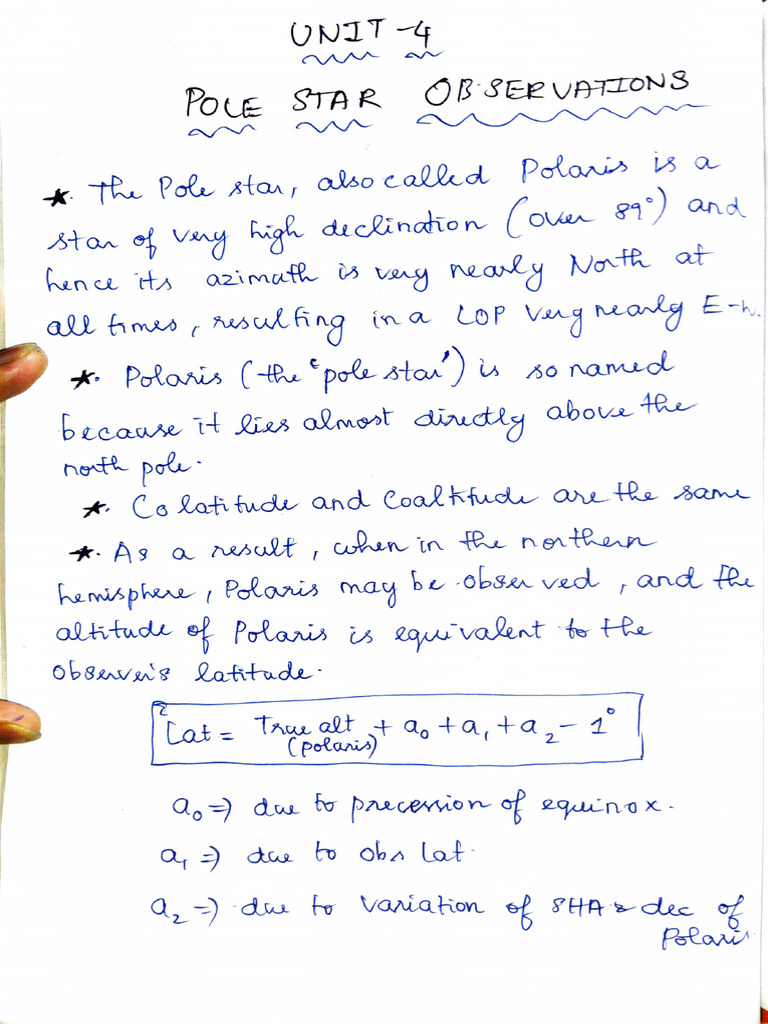 UNIT-4
POLE STAR OBSERVATIONS
★. The Pole star, also called Polaris is a
star of very high declination (over 89°) and
hence its azimuth is very nearly North at
all times, resulting in a LOP very nearly E-W.
★. Polaris (the 'pole star') is so named
because it lies almost directly above the
north pole.
★. Co latitude and Coaltitude are the same
★. As a result, when in the northern
hemisphere, Polaris may be observed, and the
altitude of Polaris is equivalent to the
observer's latitude.
Lat = True alt + a₀ + a₁ + a₂ - 1°
(polaris)
a₀ => due to precession of equinox.
a₁ => due to obs Lat.
a₂ => due to variation of SHA & dec of
Polaris